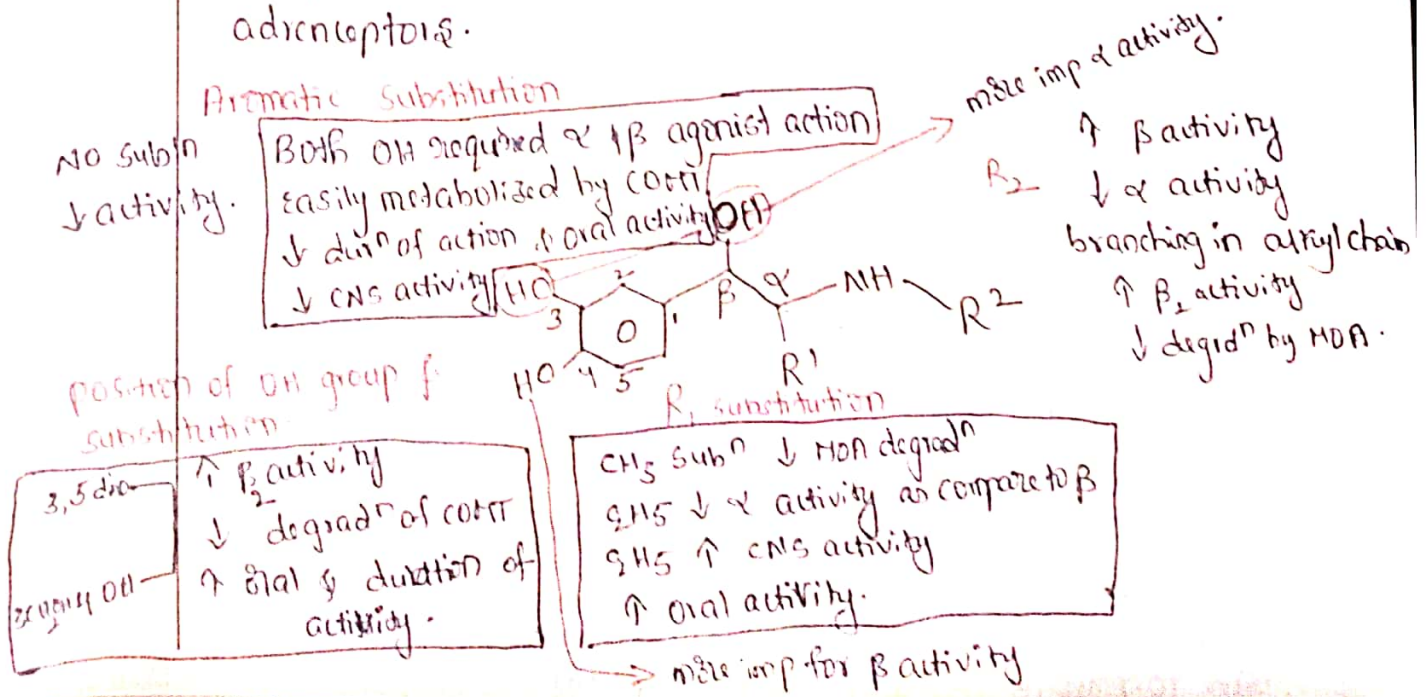 adrenceptors.
Aromatic Substitution
No subn
↓ activity.
Both OH required α & β agonist action
easily metabolized by COMT
↓ durn of action & oral activity
↓ CNS activity
more imp α activity.
R2
↑ β activity
↓ α activity
branching in alkyl chain
↑ β2 activity
↓ degrdn by MOA.
OH
HO
2
3
1
β
α
NH
R2
HO
4
5
R'
position of OH group &
substitution
3,5 dio
↑ β2 activity
↓ degradn of COMT
↑ oral & duration of
activity.
R1 substitution
CH3 subn ↓ MOA degradn
C2H5 ↓ α activity as compare to β
C2H5 ↑ CNS activity
↑ oral activity.
more imp for β activity